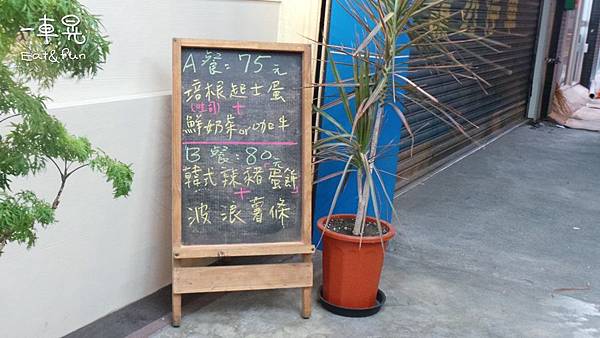 一車晃
Eat & Run
A餐:75元
培根起士蛋
(吐司) +
鮮奶茶or咖牛
B餐:80元
韓式辣豬蛋餅
+
波浪薯條